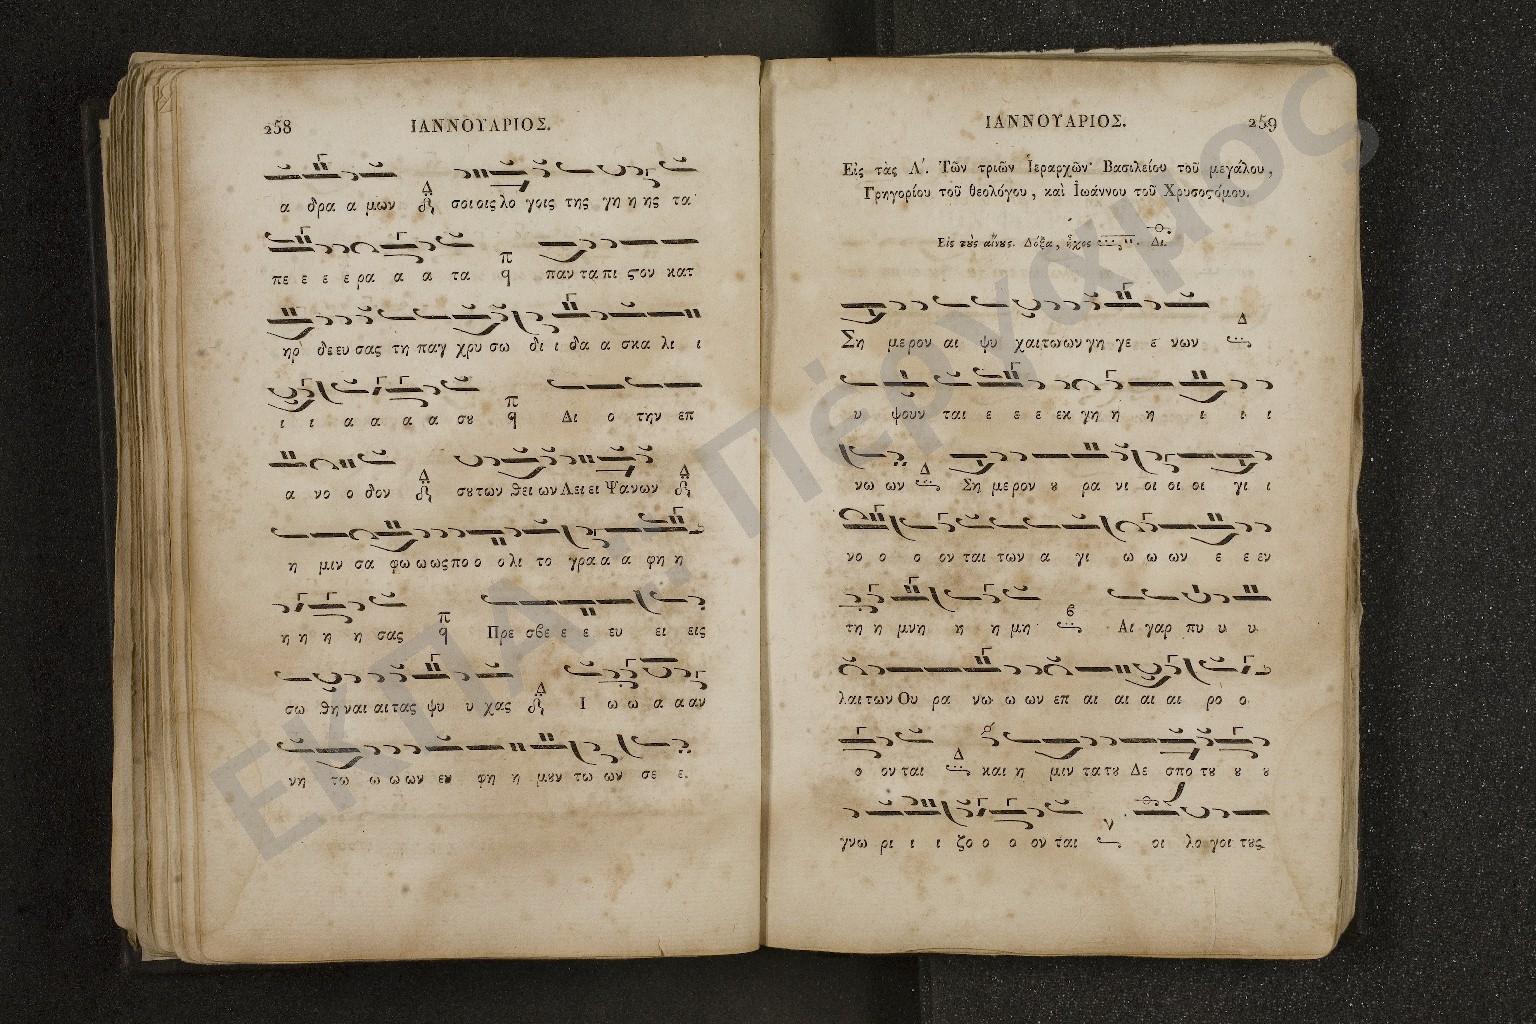 258
ΙΑΝΝΟΥΑΡΙΟΣ.
α δρα α μων Δ σοι οις λο γοις της γη η ης τα
πε ε ε ε ρα α α τα π q παν τα πι ϛον κατ
ηρ δε ευ σας τη παγ χρυ σω δι ι δα α σκα λι ι
ι ι α α α α σȣ π q Δι ο την επ
α νο ο δον Δ σȣ των θει ων Λει ει Ψα νων Δ
η μιν σα φω ω ως πο ο ο λι το γρα α α φη η
η η η η σας π q Πρε σβε ε ε ευ ει εις
σω θη ναι αι τας ψυ υ χας Δ Ι ω ω α α αν
νη τω ω ω ων ευ φη η μȣν τω ων σε ε.
ΙΑΝΝΟΥΑΡΙΟΣ.
259
Εἰς τὰς Λ´. Τῶν τριῶν Ἱεραρχῶν· Βασιλείου τοῦ μεγάλου,
Γρηγορίου τοῦ θεολόγου, καὶ Ἰωάννου τοῦ Χρυσοϛόμου.
Εἰς τȣ̀ς αἴνȣς. Δόξα, ἦχος Δι.
Ση μερον αι ψυ χαι τω ων γη γε ε νων Δ
υ ψουν ται ε ε ε εκ γη η η ι ι ι
νω ων Δ Ση με ρον ȣ ρα νι οι οι οι γι ι
νο ο ο ον ται των α γι ω ω ων ε ε εν
τη η μνη η η μη ϐ Αι γαρ πυ υ υ
λαι των Ου ρα νω ω ων επ αι αι αι αι ρο ο
ο ον ται Δ και η μιν τα τȣ Δε σπο τȣ ȣ ȣ
γνω ρι ι ι ζο ο ο ον ται ν οι λο γοι τȣς
ΕΚΠΑ - Πέργαμος